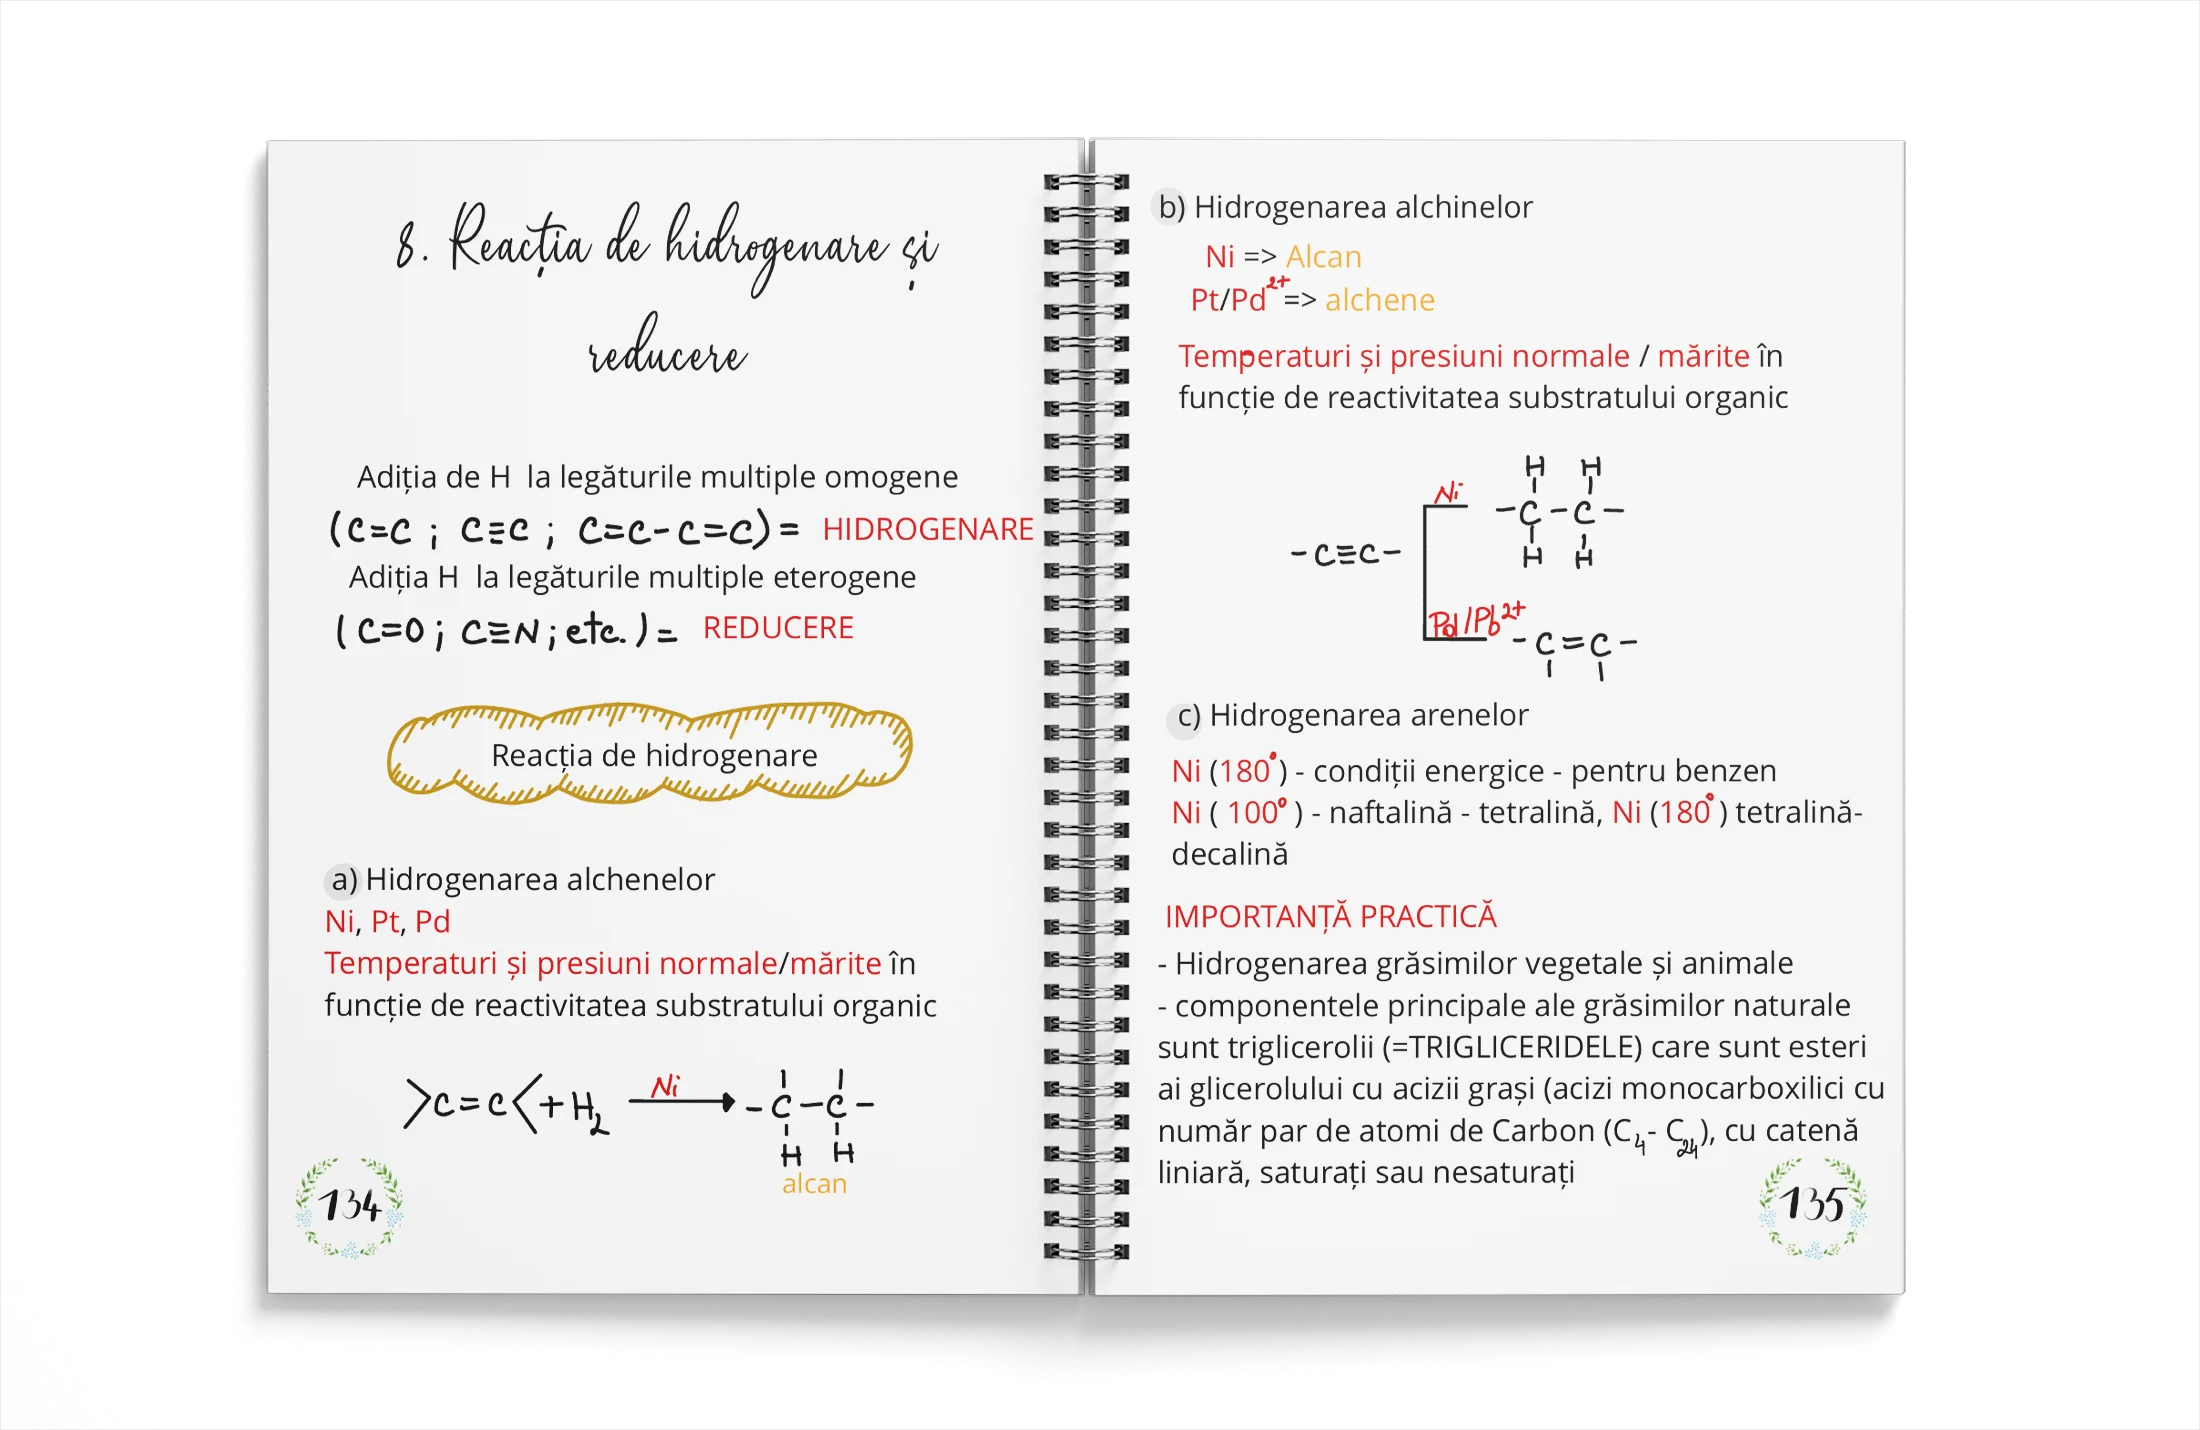 8. Reacția de hidrogenare și
reducere
Adiția de H la legăturile multiple omogene
(C=C ; C≡C ; C=C-C=C) = HIDROGENARE
Adiția H la legăturile multiple eterogene
(C=O ; C≡N ; etc.) = REDUCERE
Reacția de hidrogenare
a) Hidrogenarea alchenelor
Ni, Pt, Pd
Temperaturi și presiuni normale/mărite în
funcție de reactivitatea substratului organic
Ni
>C=C< + H₂ → -C-C-
H H
alcan
134
b) Hidrogenarea alchinelor
Ni => Alcan
Pt/Pd²⁺ => alchene
Temperaturi și presiuni normale / mărite în
funcție de reactivitatea substratului organic
H H
Ni
-C-C-
-C≡C-
H H
Pd/Pb²⁺
-C=C-
c) Hidrogenarea arenelor
Ni (180°) - condiții energice - pentru benzen
Ni ( 100° ) - naftalină - tetralină, Ni (180°) tetralină-
decalină
IMPORTANȚĂ PRACTICĂ
- Hidrogenarea grăsimilor vegetale și animale
- componentele principale ale grăsimilor naturale
sunt triglicerolii (=TRIGLICERIDELE) care sunt esteri
ai glicerolului cu acizii grași (acizi monocarboxilici cu
număr par de atomi de Carbon (C₄- C₂₄), cu catenă
liniară, saturați sau nesaturați
135